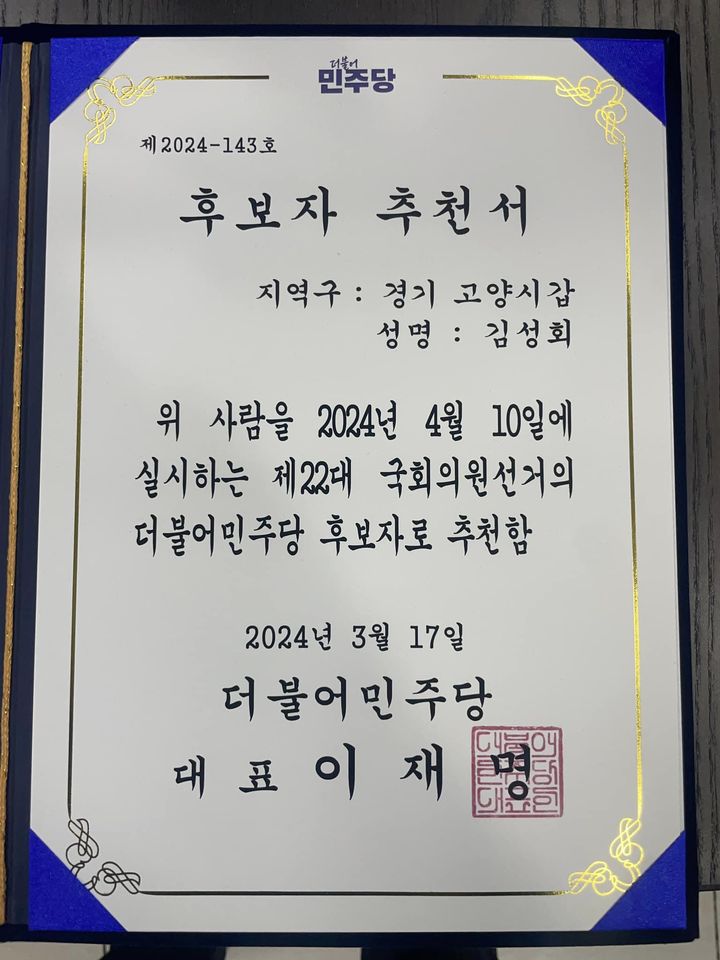 더불어
민주당
제2024-143호
후보자 추천서
지역구 : 경기 고양시갑
성명 : 김성회
위 사람을 2024년 4월 10일에
실시하는 제22대 국회의원선거의
더불어민주당 후보자로 추천함
2024년 3월 17일
더불어민주당
대표 이재명